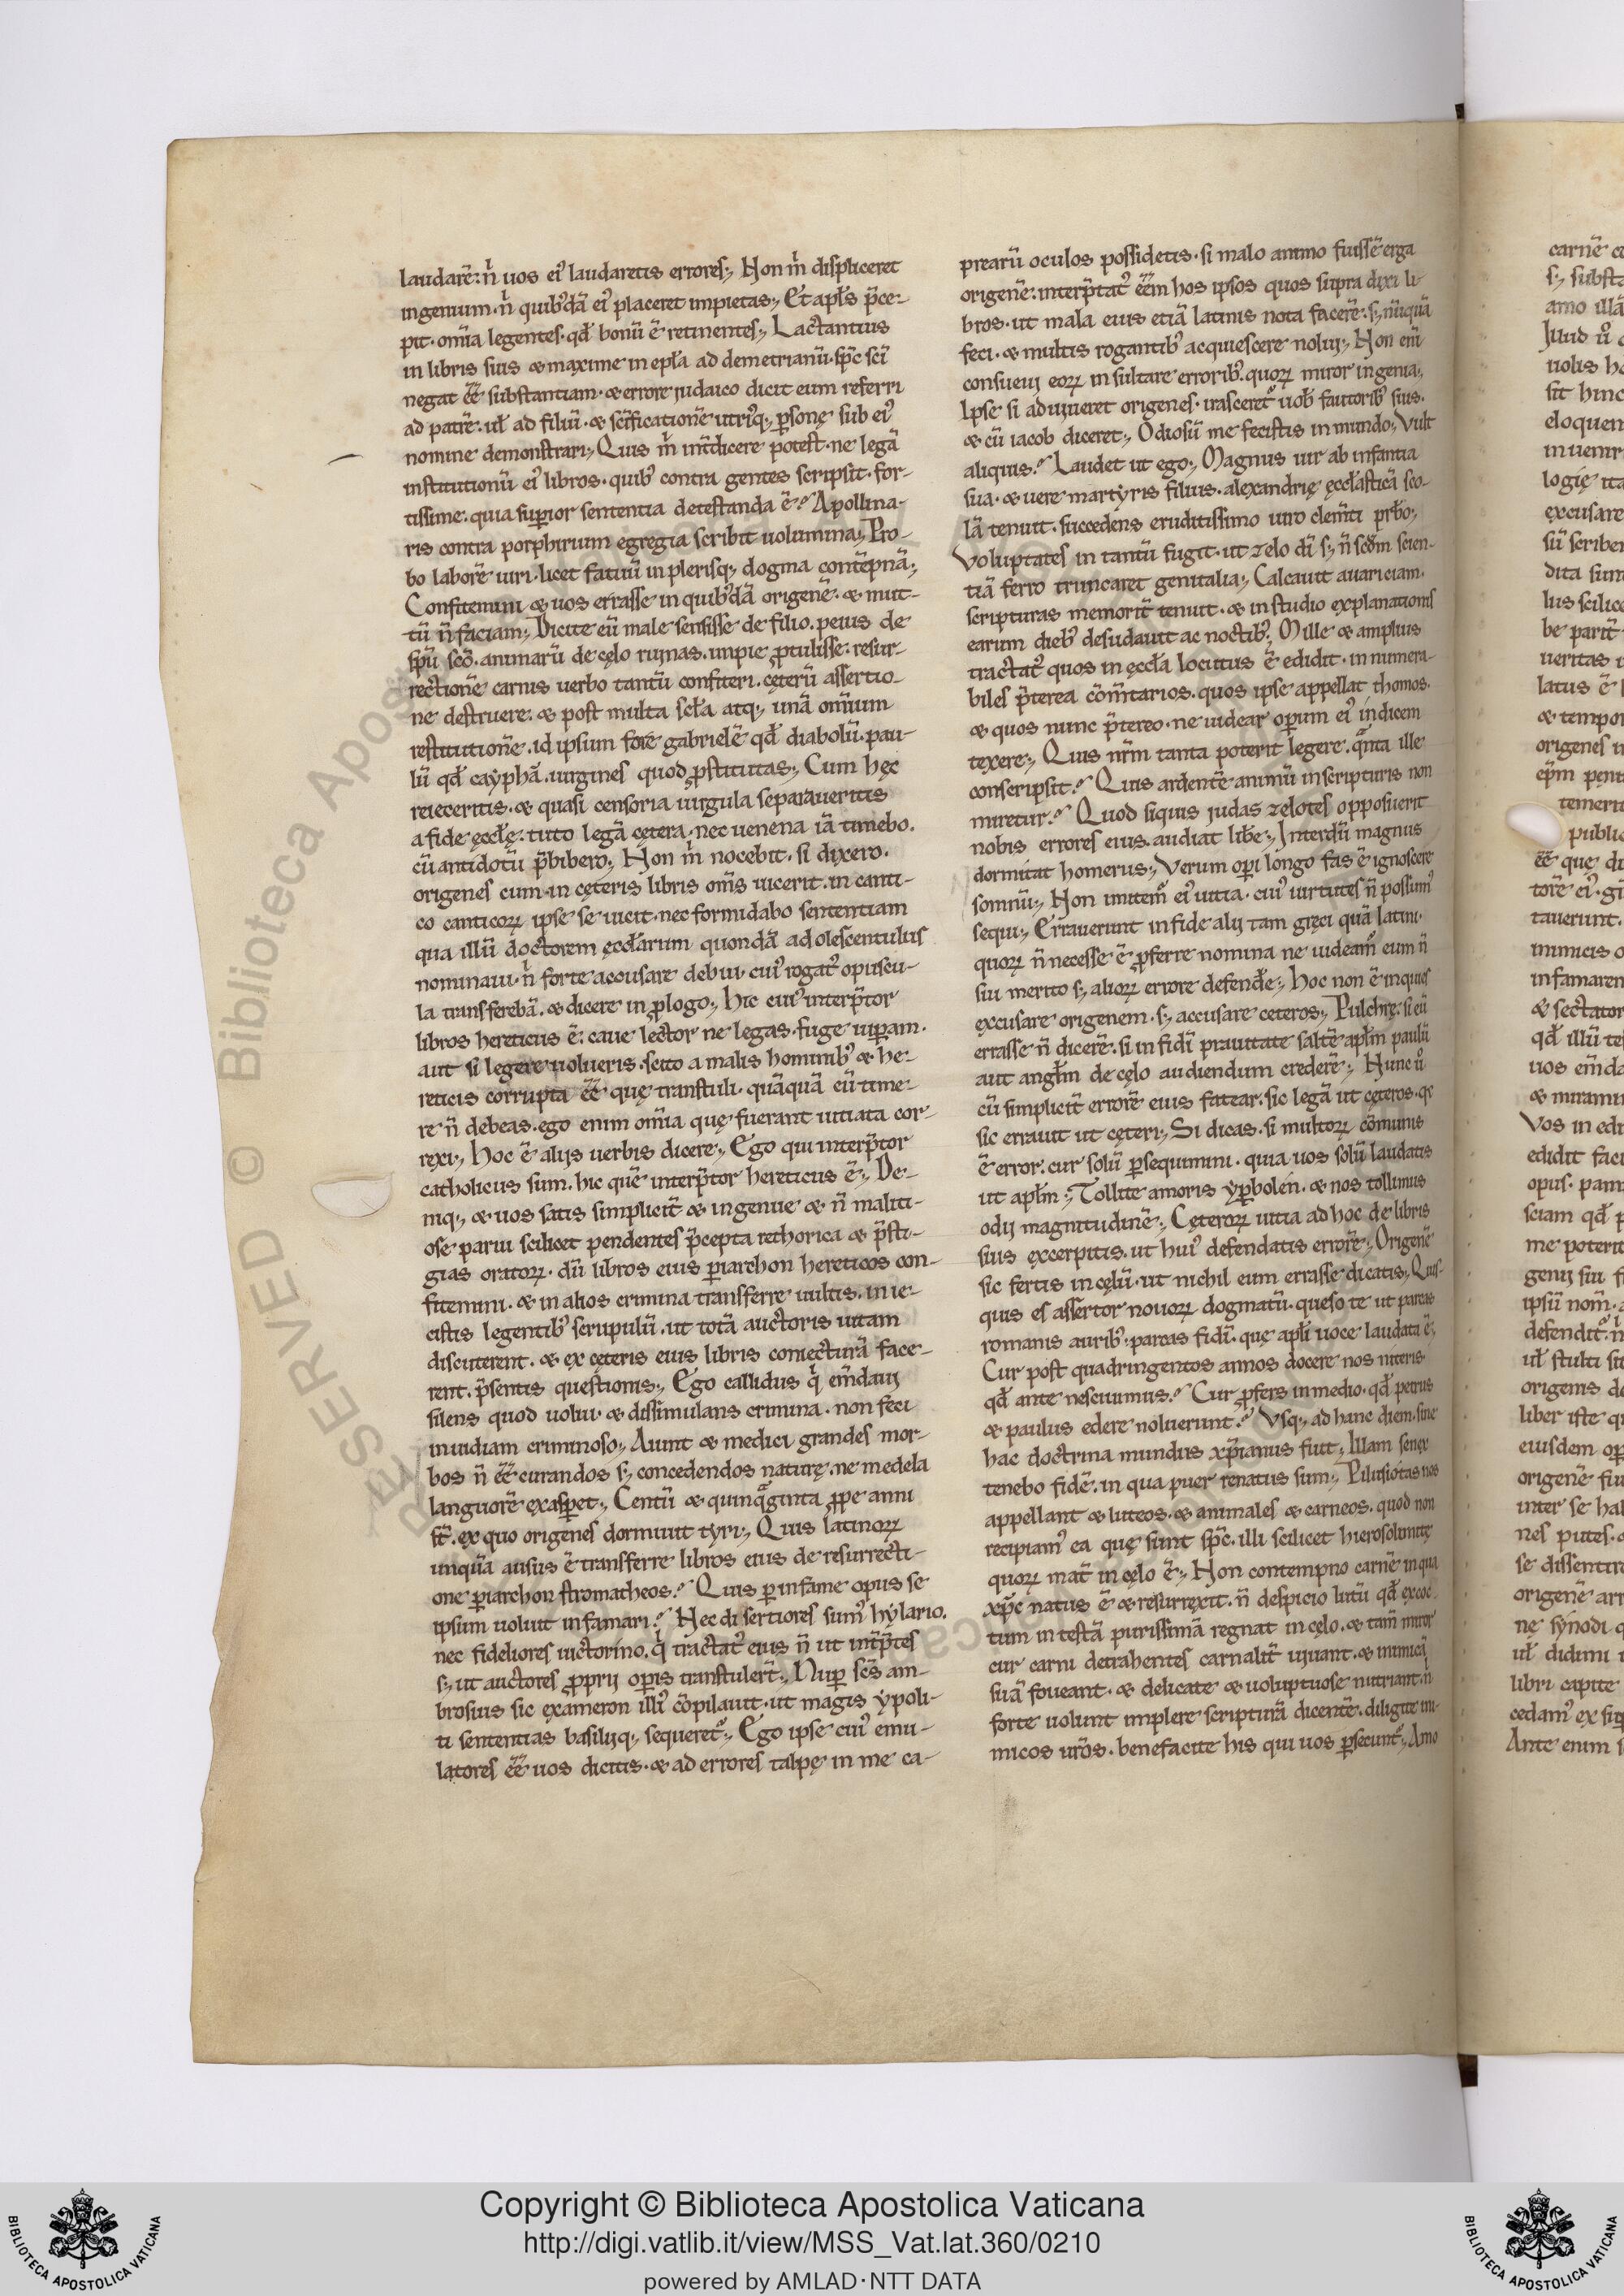 laudarē: ñ uos ei' laudaretis errores; Non m̄ displiceret
ingenium. ñ quib'dā ei' placeret impietas; Et apl's p̄ce-
pit. om̄ia legentes. qđ bonū ē retinentes; Lactantius
in libris suis & maxime in epl'a ad demetrianū. sp̄c sc̄i
negat ēē substantiam. & errore iudaico dicit eum referri
ad patrē. ul' ad filiū. & sc̄ificationē utri'q; p̲sonę sub ei'
nomine demonstrari; Quis m̄ int̄dicere potest. ne legā
institutionū ei' libros. quib' contra gentes scripsit for-
tissime: quia sup̲ior sententia detestanda ē? Apollina-
ris contra porphirium egregia scribit uolumina; Pro-
bo laborē uiri. licet fatuū in plerisq; dogma contēpnā;
Confitemini & uos errasse in quib'dā origenē. & mut-
tū n̄ faciam; Dicite eū male sensisse de filio. peius de
sp̄u sc̄o. animarū de cęlo ruinas. impie p̲tulisse: resur-
rectionē carnis uerbo tantū confiteri. cęterū assertio-
ne destruere: & post multa scl'a atq; unā omnium
restitutionē. id ipsum forē gabrielē qđ diabolū. pau-
lū qđ caẏphā. uirgines quod p̲stitutas; Cum hęc
reieceritis. & quasi censoria uirgula separaueritis
a fide ęccl'ę: tuto legā cętera. nec uenena iā timebo.
cū antidotū p̄bibero; Non m̄ nocebit. si dixero.
origenes cum in cęteris libris om̄s uicerit. in canti-
co canticoꝝ ipse se uicit. nec formidabo sententiam
qua illū doctorem ęccl'arum quondā adolescentulus
nominaui. ñ forte accusare debui. cui' rogat' opuscu-
la transferebā. & dicere in p̲logo; hic cui' interp̄tor
libros hereticus ē: caue lector ne legas. fuge uip̲am.
aut si legere uolueris. scito a malis hominib' & he-
reticis corrupta ēē quę transtuli. quāquā eū time-
re n̄ debeas. ego enim om̄ia quę fuerant uitiata cor-
rexi; hoc ē aliis uerbis dicere; Ego qui interp̄tor
catholicus sum. hic quē interp̄tor hereticus ē; De-
niq; & uos satis simplicit̄ & ingenue & n̄ maliti-
ose parui scilicet pendentes p̄cepta rethorica & p̄sti-
gias oratoꝝ. dū libros eius p̲iarchon hereticos con-
fitemini. & in alios crimina transferre uultis. in ie-
cistis legentib' scrupulū. ut totā auctoris uitam
discuterent. & ex ceteris eius libris coniecturā face-
rent. p̄sentis questionis; Ego callidus q̇ em̄daui
silens quod uolui. & dissimulans crimina. non feci
inuidiam criminoso; Aiunt & medici grandes mor-
bos n̄ ēē curandos s; concedendos naturę. ne medela
languorē exasp̲et; Centū & quinq̄ginta p̲pe anni
st̄. ex quo origenes dormiuit tyri; Quis latinoꝝ
unquā ausus ē transferre libros eius de resurrecti-
one p̲iarchon stromatheos? Quis p̲ infame opus se
ipsum uoluit infamari? Nec disertiores sum' hẏlario.
nec fideliores uictorino. q̇ tractat' eius n̄ ut int̄p̄tes
s; ut auctores p̲prii op̲is transtuler̄t; Nup̲ sc̄s am-
brosius sic exameron illi' cōpilauit. ut magis ẏpoli-
ti sententias basiliiq; sequeret'; Ego ipse cui' emu-
latores ēē uos dicitis. & ad errores talpę in me ca-
prearū oculos possidetis. si malo animo fuissē erga
origenē: interp̄tat' ēēm hos ipsos quos supra dixi li-
bros. ut mala eius etiā latinis nota facerē: s; nūquā
feci. & multis rogantib' acquiescere nolui; Non eni
consueui eoꝝ insultare errorib'. quoꝝ miror ingenia;
Ipse si adiuueret origenes. irasceret' uob' fautorib' suis.
& cū iacob diceret; Odiosū me fecistis in mundo; Vult
aliquis? Laudet ut ego; Magnus uir ab infantia
sua. & uere martẏris filius. alexandrię ęccl'asticā sco-
lā tenuit. succedens eruditissimo uiro clem̄ti pr̄bo;
Voluptates in tantū fugit. ut zelo dī s; n̄ scđm scien-
tiā ferro truncaret genitalia; Calcauit auariciam.
scripturas memorit̄ tenuit. & in studio explanationis
earum dieb' desudauit ac noctib'. Mille & amplius
tractat' quos in ęccl'a locutus ē edidit. innumera-
biles p̄terea cōm̄tarios. quos ipse appellat thomos.
& quos nunc p̄tereo. ne uidear op̲um ei' indicem
texere; Quis nr̄m tanta poterit legere. q̄nta ille
conscripsit? Quis ardentē animū in scripturis non
miretur? Quod siquis iudas zelotes opposuerit
nobis errores eius. audiat libe; Interdū magnus
dormitat homerus; Verum op̲i longo fas ē ignoscere
somnū; Non imitem' ei' uitia. cui' uirtutes n̄ possum'
sequi; Errauerunt in fide alij tam gręci quā latini.
quoꝝ n̄ necesse ē p̲ferre nomina ne uideam' eum n̄
sui merito s; alioꝝ errore defende; hoc non ē inquies
excusare origenem. s; accusare ceteros; Pulchrę. si eū
errasse n̄ dicerē. si in fidī prauitate saltē apl'm paulū
aut angl'm de cęlo audiendum crederē; Nunc u̇
cū simplicit̄ errorē eius fatear. sic legā ut cęteros. q̇
sic errauit ut cęteri; Si dicas. si multoꝝ cōmunis
ē error: cur solū p̲sequimini. quia uos solū laudatis
ut apl'm; Tollite amoris ẏp̲bolen. & nos tollimus
odij magnitudinē; Cęteroꝝ uitia ad hoc de libris
suis excerpitis. ut hui' defendatis errorē; Origenē
sic fertis in cęlū. ut nichil eum errasse dicatis; Quis-
quis es assertor nouoꝝ dogmatū. queso te ut parcas
romanis aurib'. parcas fidī. que apl'i uoce laudata ē;
Cur post quadringentos annos docere nos niteris
qđ ante nesciuimus? Cur p̲fers in medio. qđ petrus
& paulus edere noluerunt? Vsq; ad hanc diem. sine
hac doctrina mundus xp̄ianus fuit; Illam senex
tenebo fidē. in qua puer renatus sum; Pilusiotas nos
appellant & luteos. & animales & carneos. quod non
recipiam' ea quę sunt sp̄c. illi scilicet hierosolimitę
quoꝝ mat̄ in cęlo ē; Non contempno carnē in qua
xp̄c natus ē & resurrexit. n̄ despicio lutū qđ excoc-
tum in testā purissimā regnat in cęlo. & tam̄ miror
cur carni detrahentes carnalit̄ uiuant. & inimicā
suā foueant. & delicate & uoluptuose nutriant. ñ
forte uolunt implere scripturā dicentē. diligite ini-
micos ur̄os. benefacite his qui uos p̲secunt'; Amo
Copyright © Biblioteca Apostolica Vaticana
http://digi.vatlib.it/view/MSS_Vat.lat.360/0210
powered by AMLAD·NTT DATA
BIBLIOTECA APOSTOLICA VATICANA
BIBLIOTECA APOSTOLICA VATICANA